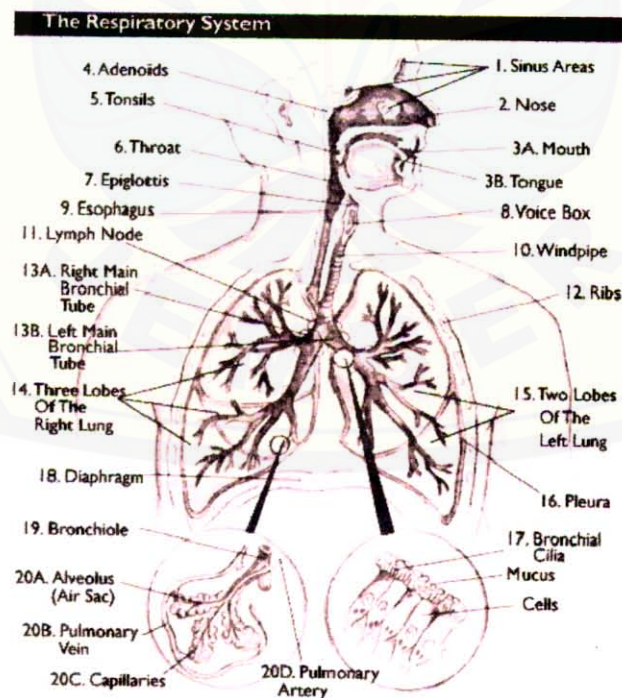 The Respiratory System
4. Adenoids
5. Tonsils
6. Throat
7. Epiglottis
9. Esophagus
11. Lymph Node
13A. Right Main
Bronchial
Tube
13B. Left Main
Bronchial
Tube
14. Three Lobes
Of The
Right Lung
18. Diaphragm
19. Bronchiole
20A. Alveolus
(Air Sac)
20B. Pulmonary
Vein
20C. Capillaries
1. Sinus Areas
2. Nose
3A. Mouth
3B. Tongue
8. Voice Box
10. Windpipe
12. Ribs
15. Two Lobes
Of The
Left Lung
16. Pleura
17. Bronchial
Cilia
Mucus
Cells
20D. Pulmonary
Artery